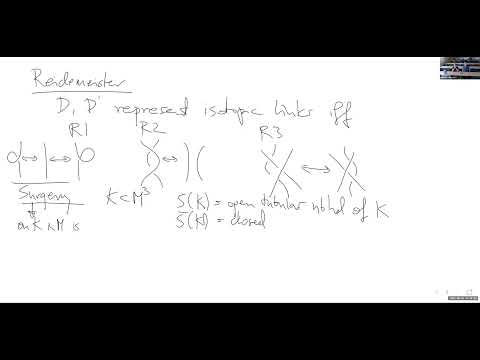 Reidemeister
D, D' represent isotopic links iff
R1 R2 R3
Surgery K ⊂ M³ S(K) = open tubular nbhd of K
on K in M is S̄(K) = closed